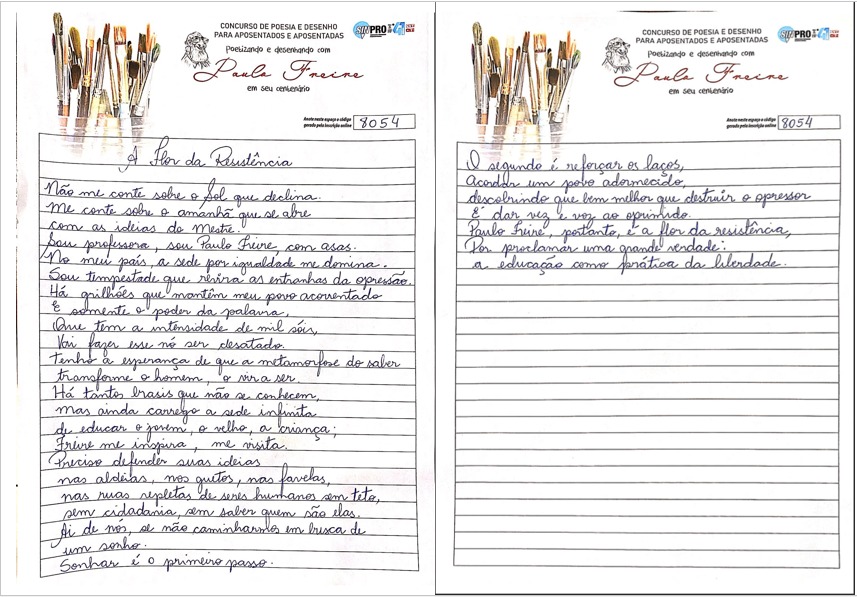 CONCURSO DE POESIA E DESENHO
PARA APOSENTADOS E APOSENTADAS
Poetizando e desenhando com
Paulo Freire
em seu centenário
SINPRO
Anote neste espaço o código
gerado pela inscrição online
8054
A Flor da Resistência
Não me conte sobre o Sol que declina.
Me conte sobre o amanhã que se abre
com as ideias do Mestre.
Sou professora, sou Paulo Freire, com asas.
No meu país, a sede por igualdade me domina.
Sou tempestade que revira as entranhas da opressão.
Há grilhões que mantêm meu povo acorrentado
E somente o poder da palavra,
Que tem a intensidade de mil sóis,
Vai fazer esse nó ser desatado.
Tenho a esperança de que a metamorfose do saber
transforme o homem, o vir a ser.
Há tantos brasis que não se conhecem,
mas ainda carrego a sede infinita
de educar o jovem, o velho, a criança;
Freire me inspira, me visita.
Preciso defender suas ideias
nas aldeias, nos guetos, nas favelas,
nas ruas repletas de seres humanos sem teto,
sem cidadania, sem saber quem são elas.
Ai de nós, se não caminharmos em busca de
um sonho.
Sonhar é o primeiro passo.
CONCURSO DE POESIA E DESENHO
PARA APOSENTADOS E APOSENTADAS
Poetizando e desenhando com
Paulo Freire
em seu centenário
SINPRO
Anote neste espaço o código
gerado pela inscrição online
8054
O segundo é reforçar os laços,
Acordar um povo adormecido,
descobrindo que bem melhor que destruir o opressor
É dar vez e voz ao oprimido.
Paulo Freire, portanto, é a flor da resistência,
Por proclamar uma grande verdade:
a educação como prática da liberdade.